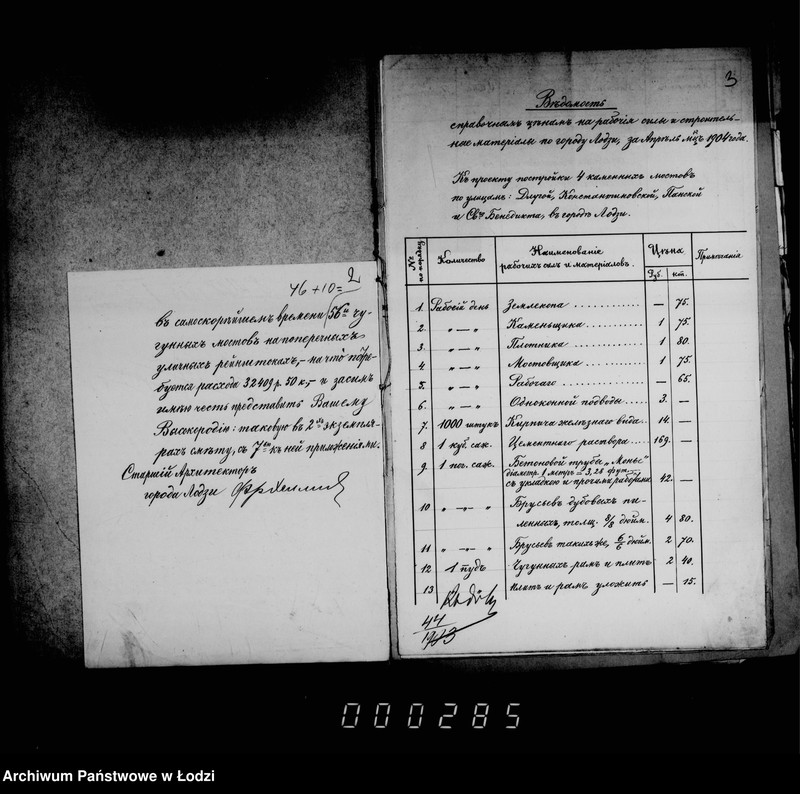 46+10= 2
въ самоскорѣйшемъ времени (56ти чу-
гунныхъ мостовъ на поперечныхъ
уличныхъ рейнштокахъ, – на что потре-
буется расхода 32409 р. 50 к., – и засимъ
имѣю честь представить Вашему
Высокородію: таковую въ 2хъ экземпля-
рахъ смѣту, съ 7ю къ ней приложеніями.
Старшій Архитекторъ
города Лодзи
3
Вѣдомость
справочнымъ цѣнамъ на рабочія силы и строитель-
ные матеріалы по городу Лодзи, за Апрѣль мцъ 1904 года.
Къ проекту постройки 4 каменныхъ мостовъ
по улицамъ: Длугой, Константиновской, Панской
и Свто Бенедикта, въ городѣ Лодзи.
№ по порядку | Количество | Наименованіе рабочихъ силъ и матеріаловъ. | Цѣна Руб. коп. | Примѣчанія
1. Рабочій день Землекопа — 75.
2. „ — „ Каменьщика 1 75.
3. „ — „ Плотника 1 80.
4. „ — „ Мостовщика 1 75.
5. „ — „ Рабочаго — 65.
6. „ — „ Одноконной подводы 3. —
7. 1000 штукъ Кирпича желѣзнаго вида 14. —
8 1 куб. саж. Цементнаго раствора 169. —
9. 1 пог. саж. Бетоновой трубы „Монье"
діаметр. 1 метръ = 3,28 фут.
съ укладкою и прочими работами 42. —
10 „ — „ Брусьевъ дубовыхъ пи-
ленныхъ, толщ. 8/8 дюйм. 4 80.
11 „ — „ Брусьевъ такихъ же, 6/6 дюйм. 2 70.
12 1 пудъ Чугунныхъ рамъ и плитъ 2 40.
13 Плитъ и рамъ уложить — 15.
44
1913
000285
Archiwum Państwowe w Łodzi